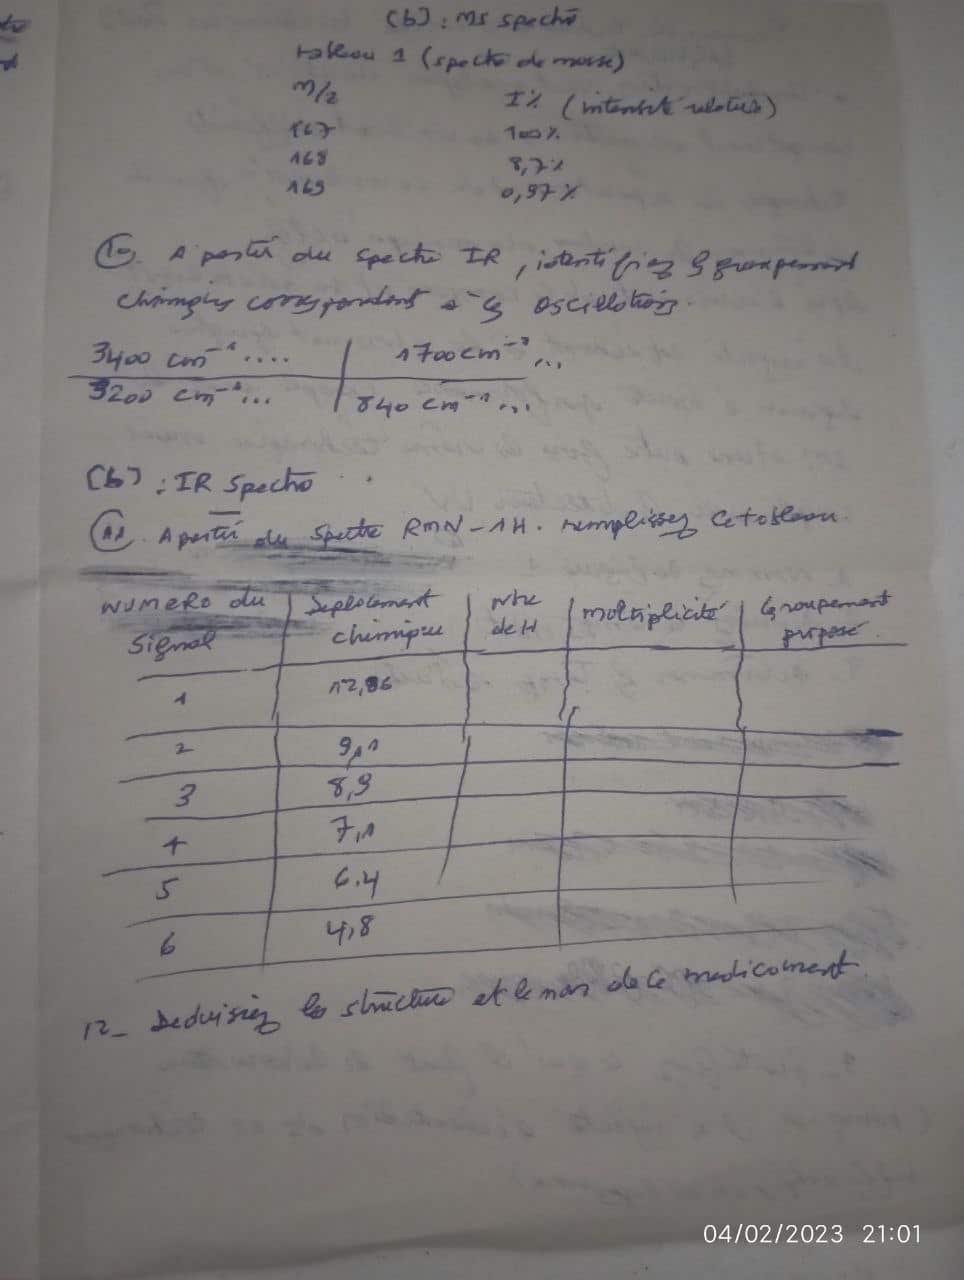 (b) : MS spectro
tableau 1 (spectre de masse)
m/z I% (intensité relative)
167 100%
168 8,7%
169 0,97%
10. A partir du spectre IR, identifiez les groupement
chimiques correspondant à ces oscillations.
3400 cm⁻¹.... 1700 cm⁻¹...
3200 cm⁻¹... 840 cm⁻¹...
(b) : IR Spectro
11. A partir du Spectre RMN-1H. remplissez ce tableau.
NUMERO du Signal Deplacement chimique Nbre de H multiplicité Groupement proposé
1 12,86
2 9,1
3 8,9
4 7,1
5 6.4
6 4,8
12- Deduisiez la structure et le nom de ce medicament.
04/02/2023 21:01